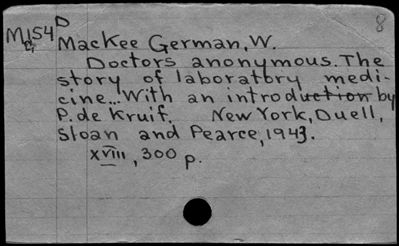 D
8
M154
Mackee German, W.
Doctors anonymous. The
story of laboratory medi-
cine... With an introduction by
P. de Kruif. New York, Duell,
Sloan and Pearce, 1943.
XVIII, 300 p.